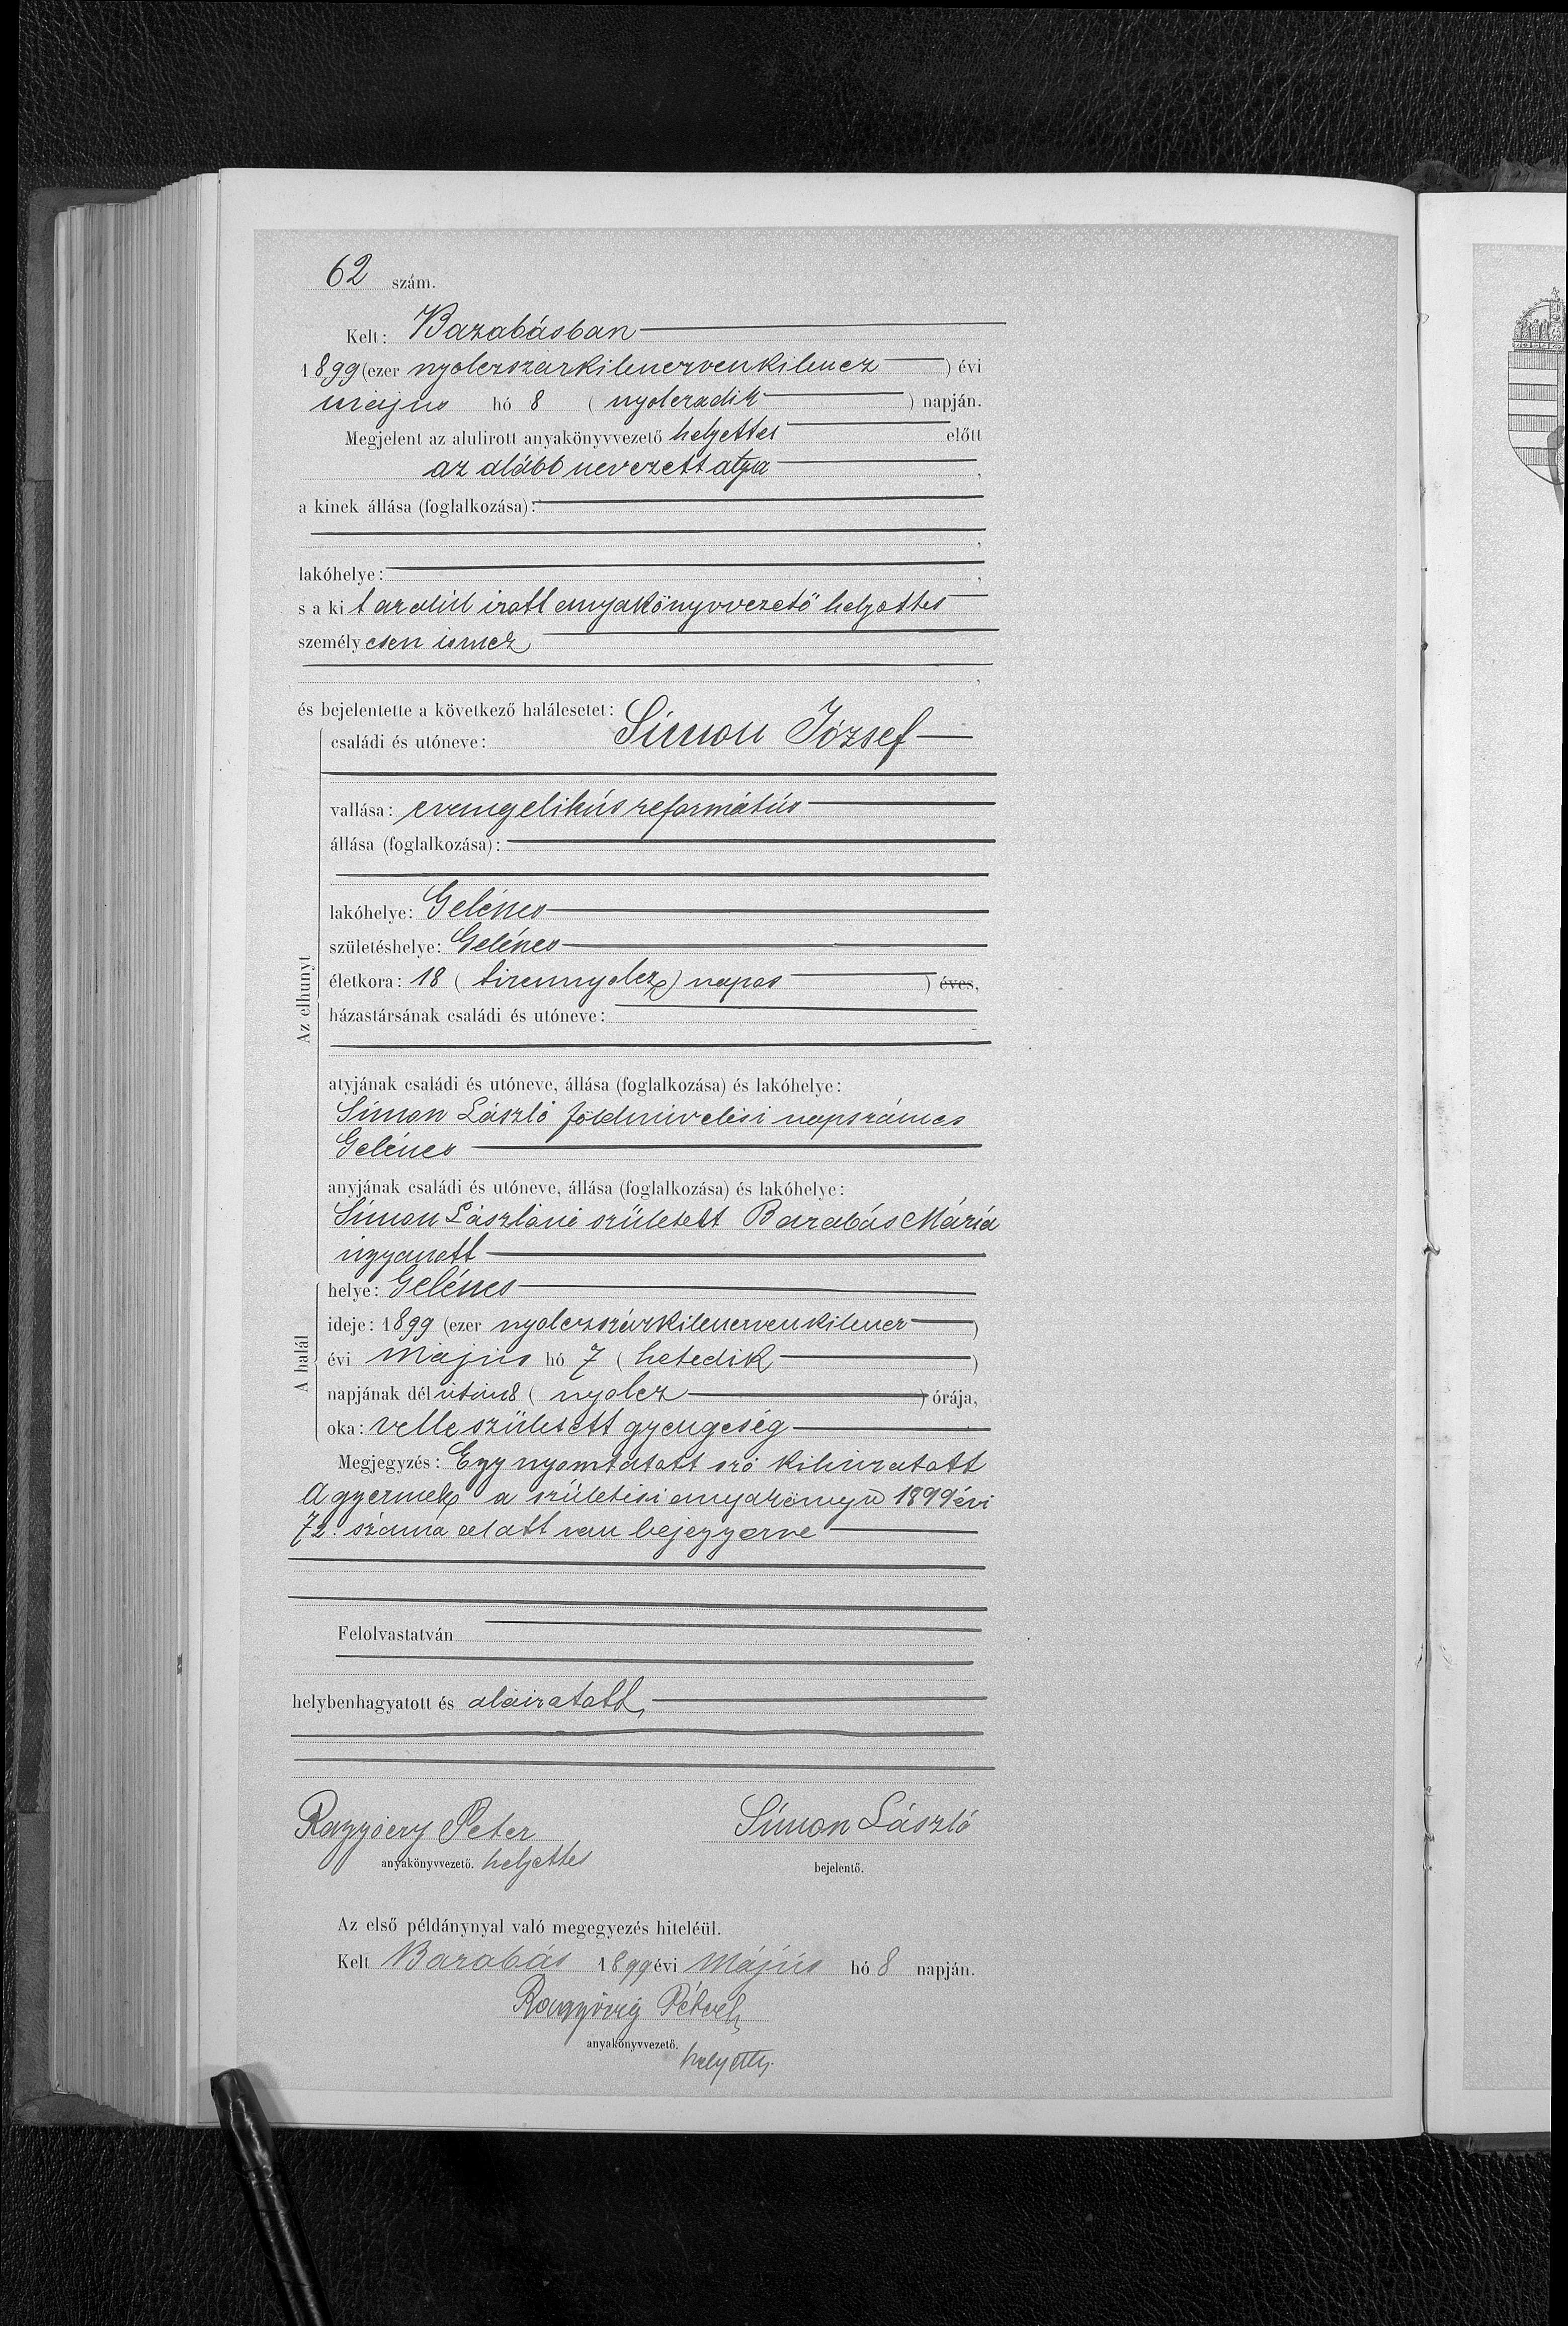 62 szám.
Kelt: Barabásban
1899 (ezer nyolczszázkilenczvenkilencz ) évi
május hó 8 ( nyolczadik ) napján.
Megjelent az alulirott anyakönyvvezető helyettes előtt
az alább nevezett atyja ,
a kinek állása (foglalkozása):
,
lakóhelye: ,
s a kit aralúl iratt anyakönyvvezető helyettes
személyesen ismer
,
és bejelentette a következő halálesetet:
Az elhunyt
családi és utóneve: Simon József
vallása: evangelikús reformátús
állása (foglalkozása):
lakóhelye: Gelénes
születéshelye: Gelénes
életkora: 18 ( tizennyolcz) napos ) éves,
házastársának családi és utóneve:
atyjának családi és utóneve, állása (foglalkozása) és lakóhelye:
Simon László földmívelési napszámos
Gelénes
anyjának családi és utóneve, állása (foglalkozása) és lakóhelye:
Simon Lászlóné született Barabás Mária
úgyanott
A halál
helye: Gelénes
ideje: 1899 (ezer nyolczszázkilenczvenkilencz )
évi május hó 7 ( hetedik )
napjának délután 8 ( nyolcz ) órája,
oka: velle született gyengeség
Megjegyzés: Egy nyomtatott szó kihúzatott
A gyermek a születési anyakönyv 1899 évi
72. száma alatt van bejegyezve
Felolvastatván
helybenhagyatott és aláíratott,
Péter Simon László
anyakönyvvezető. helyettes bejelentő.
Az első példánynyal való megegyezés hiteléül.
Kelt Barabás 1899 évi Május hó 8 napján.
Péter
anyakönyvvezető. helyettes